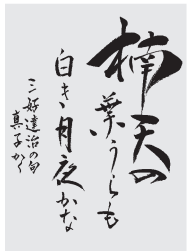 楠天の
葉うらも
白き月夜かな
三好達治の句
真子かく